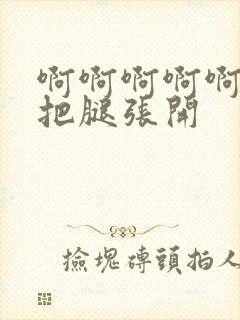 啊啊啊啊啊
把腿张開
撿塊磚頭拍人